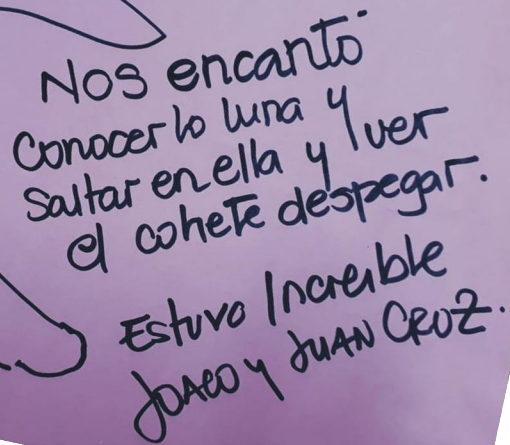 Nos encantó
Conocer la luna y
saltar en ella y ver
el cohete despegar.
Estuvo Increible
JOACO y JUAN CRUZ.